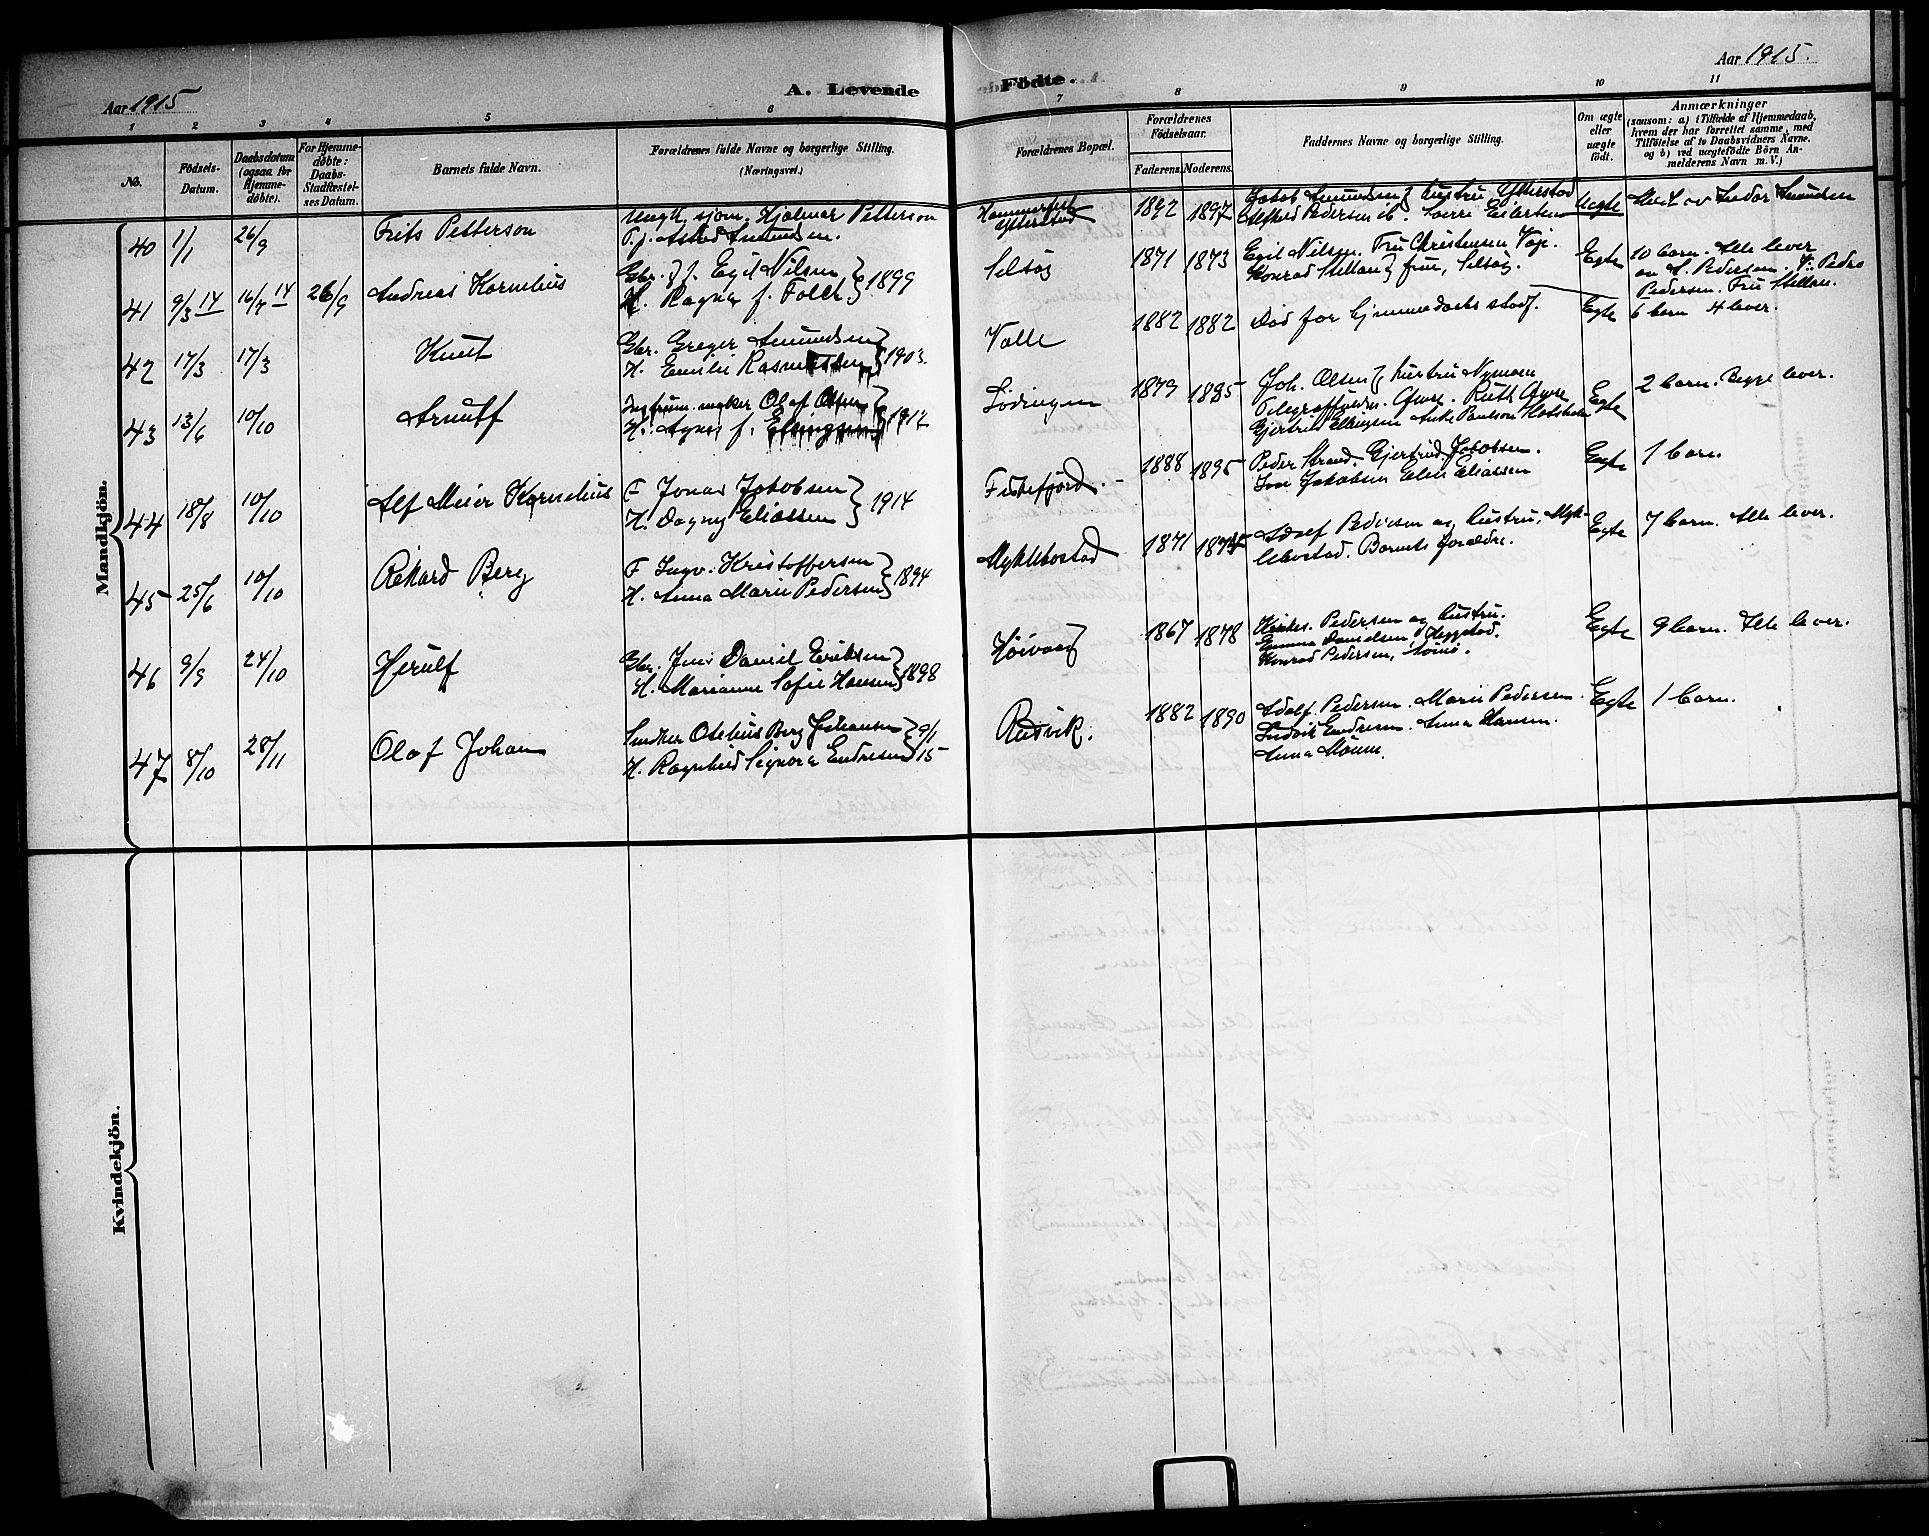 Aar 1915
A. Levende Födte.
Aar 1915.
1 2 3 4 5 6 7 8 9 10 11
No.
Födsels-
Datum.
Daabsdatum
(ogsaa for
Hjemme-
döbte).
For Hjemme-
döbte:
Daabs-
Stadfæstel-
ses Datum.
Barnets fulde Navn.
Forældrenes fulde Navne og borgerlige Stilling.
(Næringsvei.)
Forældrenes Bopæl.
Forældrenes
Födselsaar.
Faderens. Moderens.
Faddernes Navne og borgerlige Stilling.
Om ægte
eller
uægte
födt.
Anmærkninger
(saasom: a) i Tilfælde af Hjemmedaab,
hvem der har forrettet samme, med
Tilföielse af to Daabsvidners Navne,
og b) ved uægtefödte Börn An-
melderens Navn m. V.)
Mandkjön.
40 1/1 26/9 Frits Petterson
Ungk. sjøm. Hjalmar Petterson
P.j. Astrid Amundsen.
Hammerfest
Ytterstad
1892 1897
Jakob Amundsen og hustru Ytterstad
Alfred Pedersen
Uegte
41 9/3 14 16/7 14 26/9 Andreas Kornelius
Gbr. Egil Nilsen
H. Ragna f. Falch } 1899
Selsøy
1871 1873
Egil Nilsen. Fru Christensen
Konrad Stellan og frue, Selsøy.
Egte
10 barn. Alle lever
Pedersen. Fru Stellan.
42 17/3 17/3 Knut
Gbr. Greger Amundsen
H. Emilie Rasmussen } 1903.
Valle
1882 1882
Død før hjemmedaabs stadf.
Egte
6 barn 4 lever.
43 13/6 10/10 Arnulf
Instrum. maker Olaf Olsen
H. Agnes f. Ellingsen } 1912
Lødingen
1879 1885
Joh. Olsen og hustru Nyman
Gjertrud Ellingsen
Egte
2 barn. Begge lever.
44 18/8 10/10 Alf Meier Kornelius
F Jonas Jakobsen
H. Dagny Eliassen } 1914
Fiskefjord
1888 1895
Peder Strand. Gjertrud Jakobsen.
Ivar Jakobsen Elen Eliassen
Egte
1 barn.
45 25/6 10/10 Rikard Berg
F Ingv. Kristoffersen
H. Anna Marie Pedersen } 1894
Myklebostad
1871 1874
Adolf Pedersen og hustru, Myk-
lebostad. Barnets forældre.
Egte
7 barn. Alle lever.
46 9/9 24/10 Herulf
Gbr. Jens Daniel Eriksen
H. Marianne Sofie Hansen } 1898
1867 1878
Pedersen og hustru.
Emma Danielsen
Konrad Pedersen,
Egte
9 barn. Alle lever.
47 8/10 28/11 Olaf Johan
Snedker Otelius Berg Johansen } 9/1
H. Ragnhild Signora Endresen } 15
Rødvik.
1882 1890
Adolf Pedersen. Marie Pedersen
Ludvik Endresen. Anna Hansen.
Anna
Egte
1 barn.
Kvindekjön.